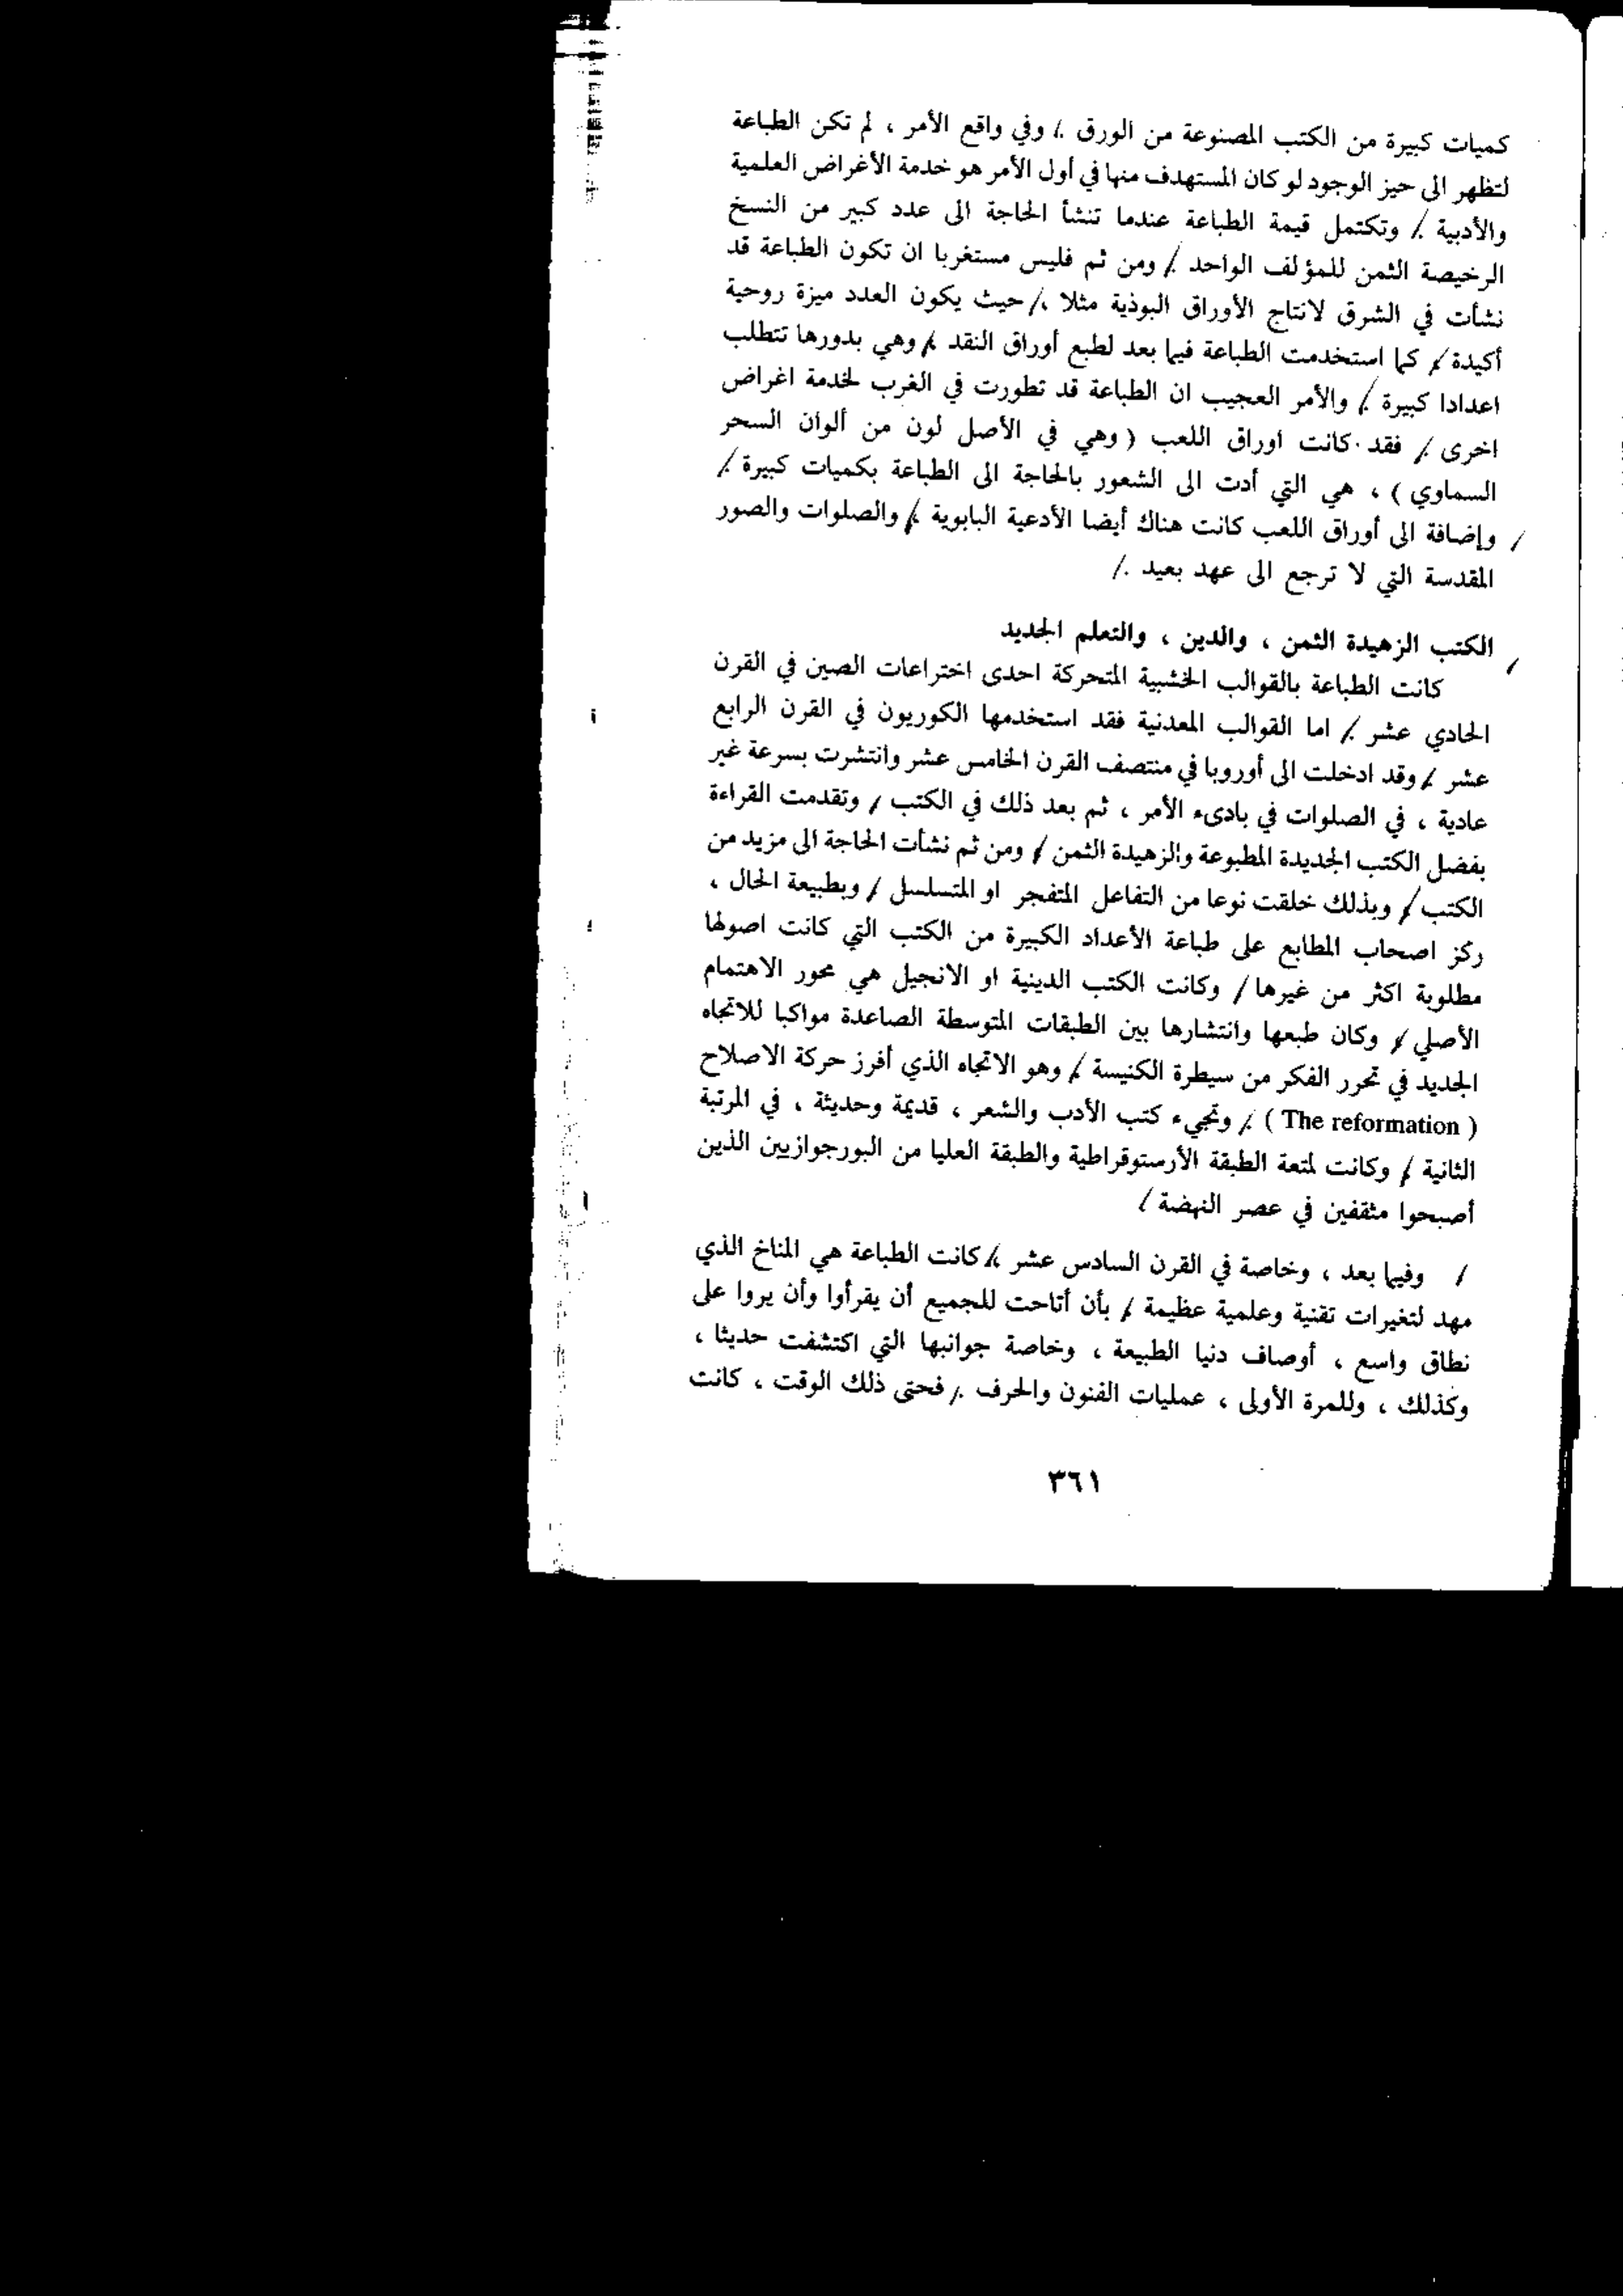 كميات كبيرة من الكتب المصنوعة من الورق . / وفي واقع الأمر ، لم تكن الطباعة
لتظهر الى حيز الوجود لو كان المستهدف منها في أول الأمر هو خدمة الأغراض العلمية
والأدبية . / وتكتمل قيمة الطباعة عندما تنشأ الحاجة الى عدد كبير من النسخ
الرخيصة الثمن للمؤلف الواحد . / ومن ثم فليس مستغربا ان تكون الطباعة قد
نشأت في الشرق لانتاج الأوراق البوذية مثلا ، / حيث يكون العدد ميزة روحية
أكيدة ، / كما استخدمت الطباعة فيما بعد لطبع أوراق النقد ، / وهي بدورها تتطلب
اعدادا كبيرة . / والأمر العجيب ان الطباعة قد تطورت في الغرب لخدمة اغراض
اخرى . / فقد كانت اوراق اللعب ( وهي في الأصل لون من ألوان السحر
السماوي ) ، هي التي أدت الى الشعور بالحاجة الى الطباعة بكميات كبيرة . /
/ وإضافة الى أوراق اللعب كانت هناك أيضا الأدعية البابوية ، / والصلوات والصور
المقدسة التي لا ترجع الى عهد بعيد . /
الكتب الزهيدة الثمن ، والدين ، والتعلم الجديد
/ كانت الطباعة بالقوالب الخشبية المتحركة احدى اختراعات الصين في القرن
الحادي عشر . / اما القوالب المعدنية فقد استخدمها الكوريون في القرن الرابع
عشر . / وقد ادخلت الى أوروبا في منتصف القرن الخامس عشر وانتشرت بسرعة غير
عادية ، في الصلوات في بادىء الأمر ، ثم بعد ذلك في الكتب . / وتقدمت القراءة
بفضل الكتب الجديدة المطبوعة والزهيدة الثمن ، / ومن ثم نشأت الحاجة الى مزيد من
الكتب ، / وبذلك خلقت نوعا من التفاعل المتفجر او المتسلسل . / وبطبيعة الحال ،
ركز اصحاب المطابع على طباعة الأعداد الكبيرة من الكتب التي كانت اصولها
مطلوبة اكثر من غيرها / وكانت الكتب الدينية او الانجيل هي محور الاهتمام
الأصلي ، / وكان طبعها وانتشارها بين الطبقات المتوسطة الصاعدة مواكبا للاتجاه
الجديد في تحرر الفكر من سيطرة الكنيسة ، / وهو الاتجاه الذي أفرز حركة الاصلاح
( The reformation ) . / وتجيء كتب الأدب والشعر ، قديمة وحديثة ، في المرتبة
الثانية ، / وكانت لمتعة الطبقة الأرستوقراطية والطبقة العليا من البورجوازيين الذين
أصبحوا مثقفين في عصر النهضة /
/ وفيما بعد ، وخاصة في القرن السادس عشر ، / كانت الطباعة هي المناخ الذي
مهد لتغيرات تقنية وعلمية عظيمة ، / بأن أتاحت للجميع أن يقرأوا وأن يروا على
نطاق واسع ، أوصاف دنيا الطبيعة ، وخاصة جوانبها التي اكتشفت حديثا ،
وكذلك ، وللمرة الأولى ، عمليات الفنون والحرف . / فحتى ذلك الوقت ، كانت
٣٦١